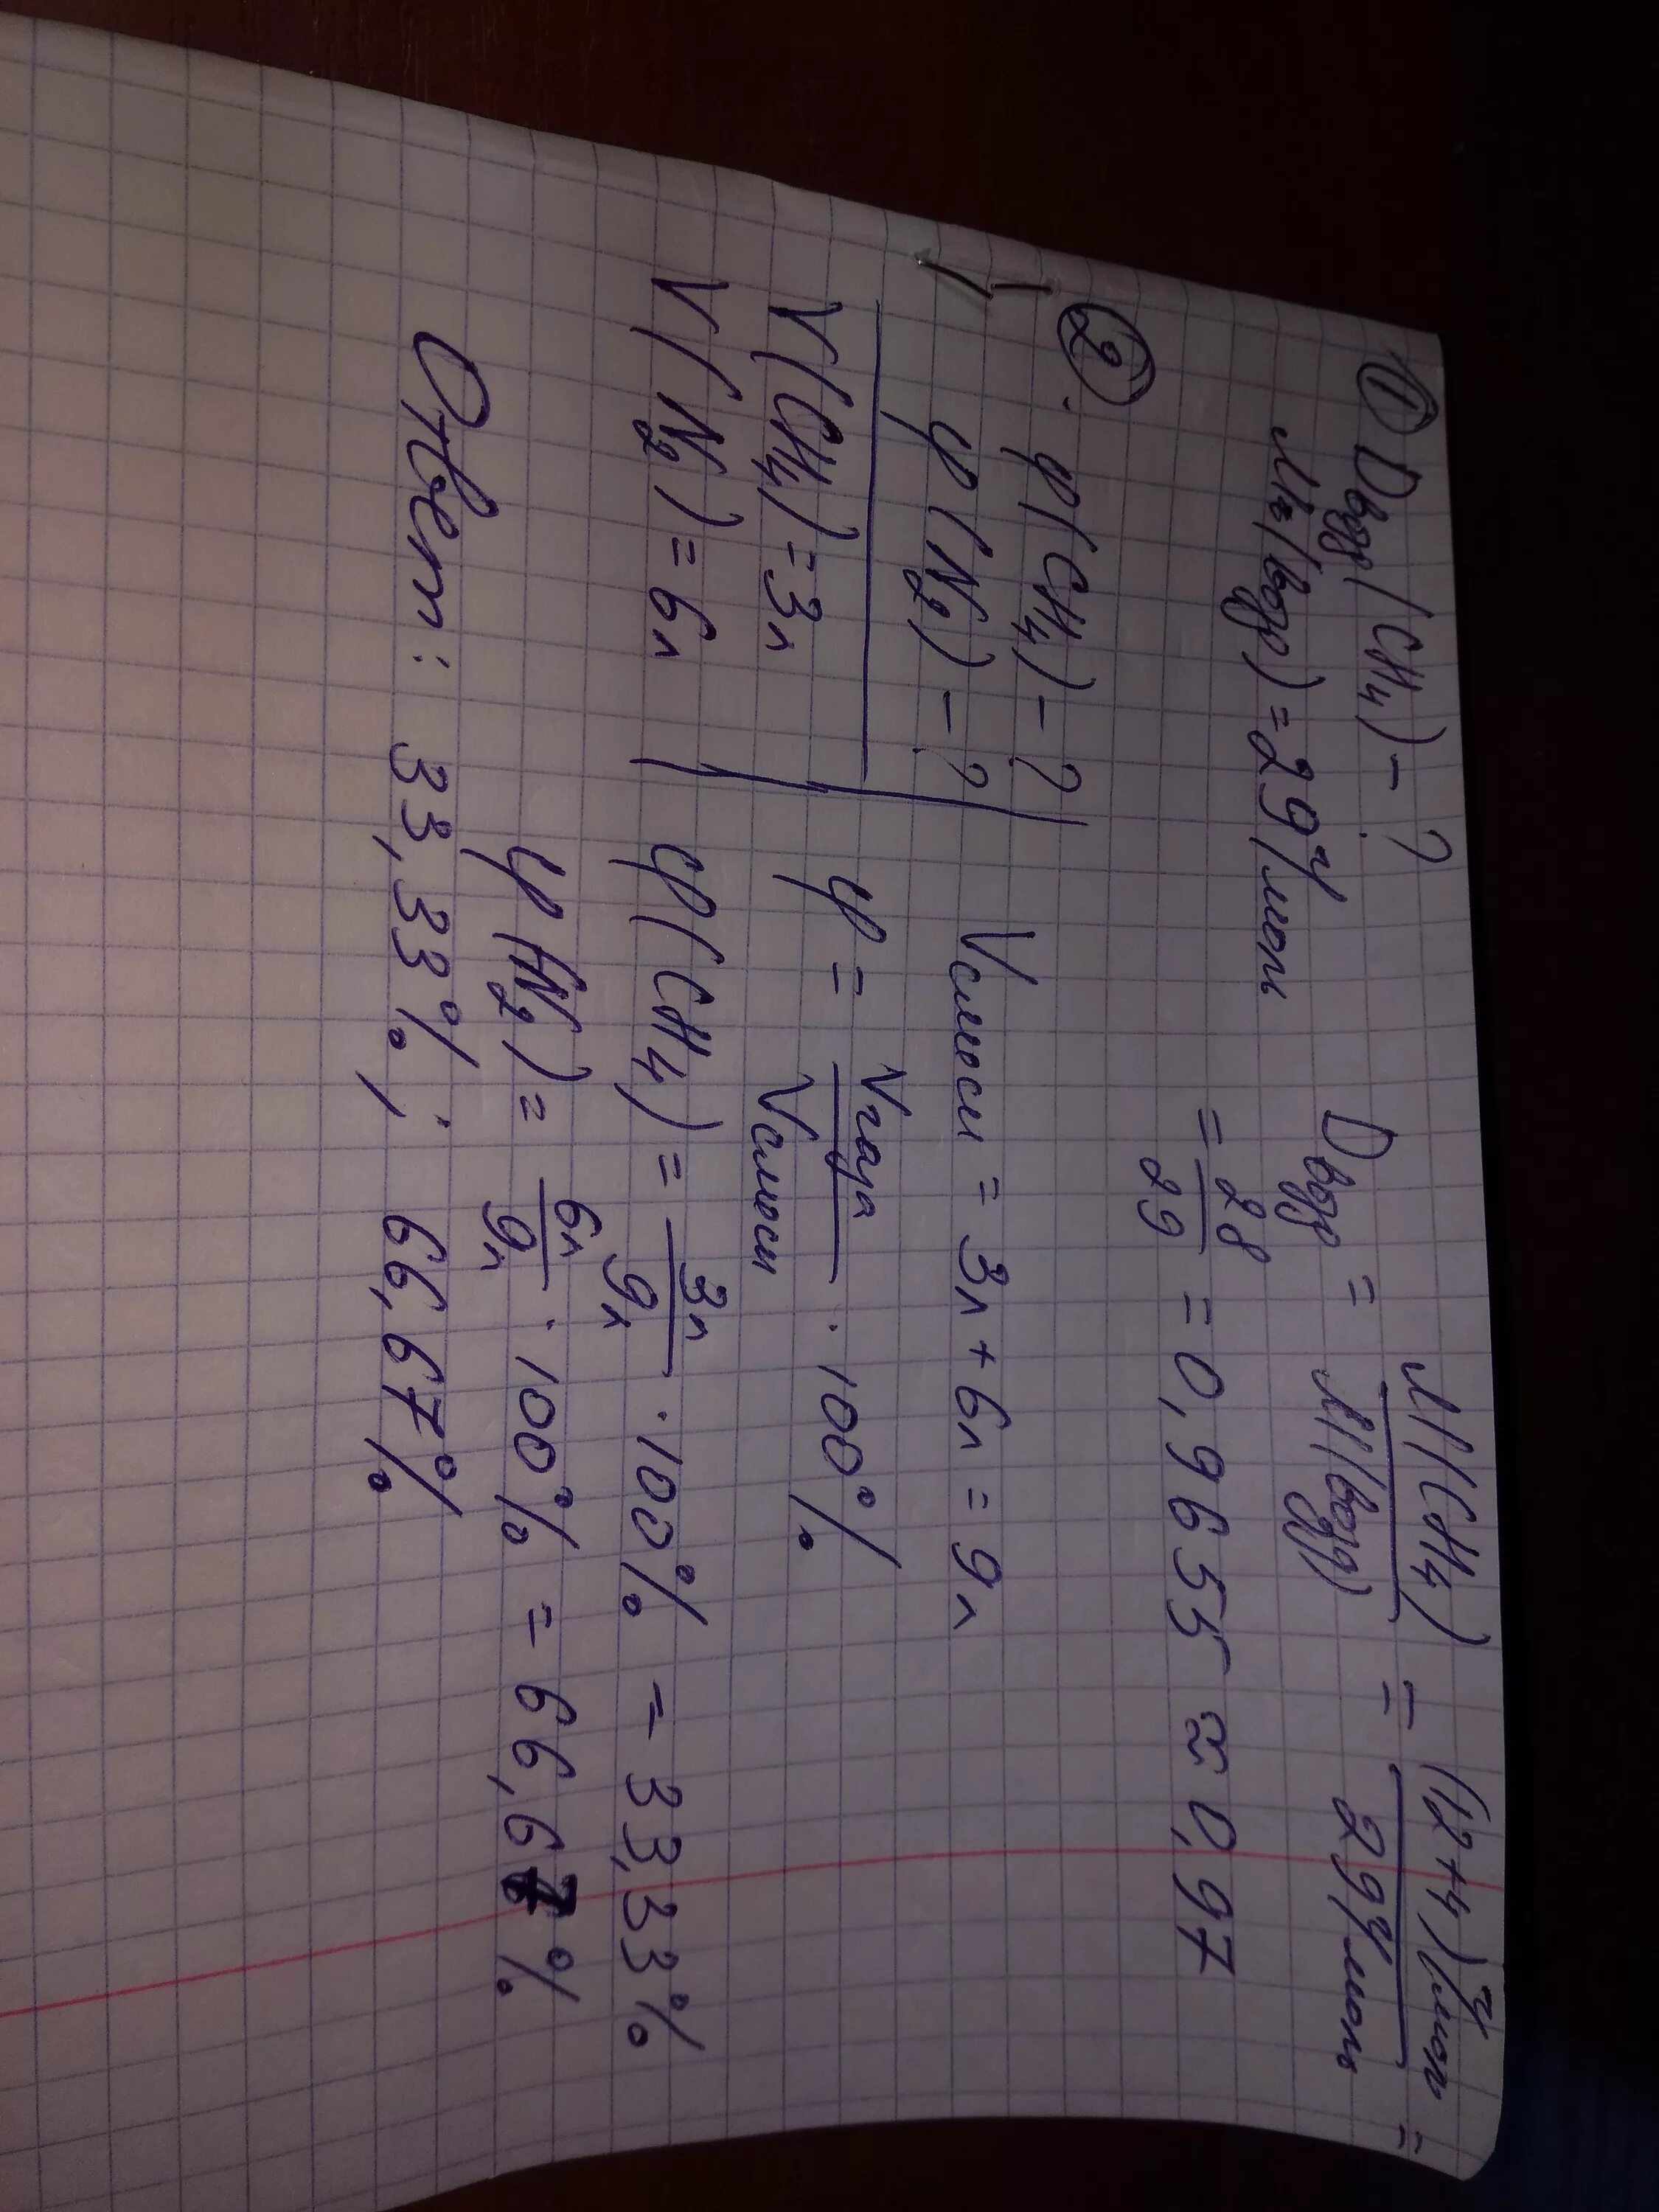 ① Dвозд(CH₄) - ?
Mr(возд) = 29 г/моль
Dвозд = M(CH₄)/M(возд) = (12+4) г/моль / 29 г/моль =
= 28/29 = 0,9655 ≈ 0,97
②. φ(CH₄) - ?
φ(N₂) - ?
V(CH₄) = 3л
V(N₂) = 6л
Vсмеси = 3л + 6л = 9л
φ = Vгаза/Vсмеси · 100%
φ(CH₄) = 3л/9л · 100% = 33,33%
φ(N₂) = 6л/9л · 100% = 66,67%
Ответ: 33,33%; 66,67%